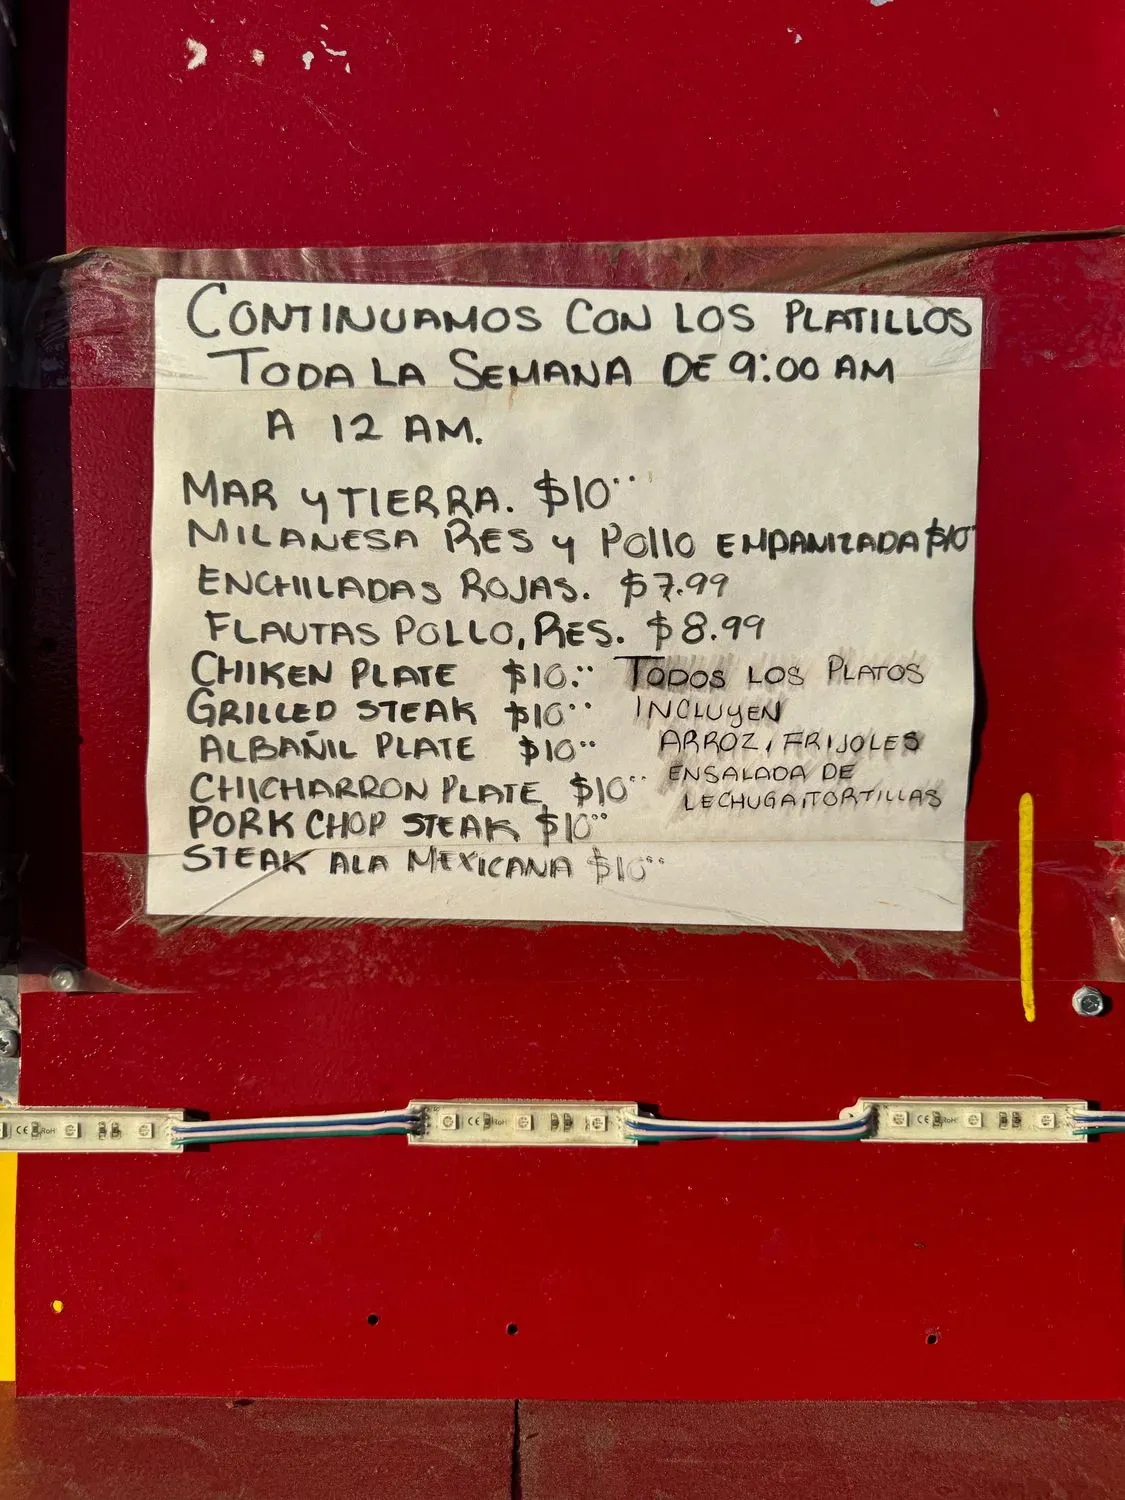 CONTINUAMOS CON LOS PLATILLOS
TODA LA SEMANA DE 9:00 AM
A 12 AM.
MAR y TIERRA. $10°°
MILANESA RES y Pollo EMPANIZADA $10°
ENCHILADAS ROJAS. $7.99
FLAUTAS POLLO, RES. $8.99
CHIKEN PLATE $10.°°
GRILLED STEAK $10°°
ALBAÑIL PLATE $10°°
CHICHARRON PLATE $10°°
PORK CHOP STEAK $10°°
STEAK ALA MEXICANA $10°°
TODOS LOS PLATOS
INCLUyEN
ARROZ, FRIJOLES
ENSALADA DE
LECHUGA, TORTILLAS
CE RoH
CE RoH
CE RoH